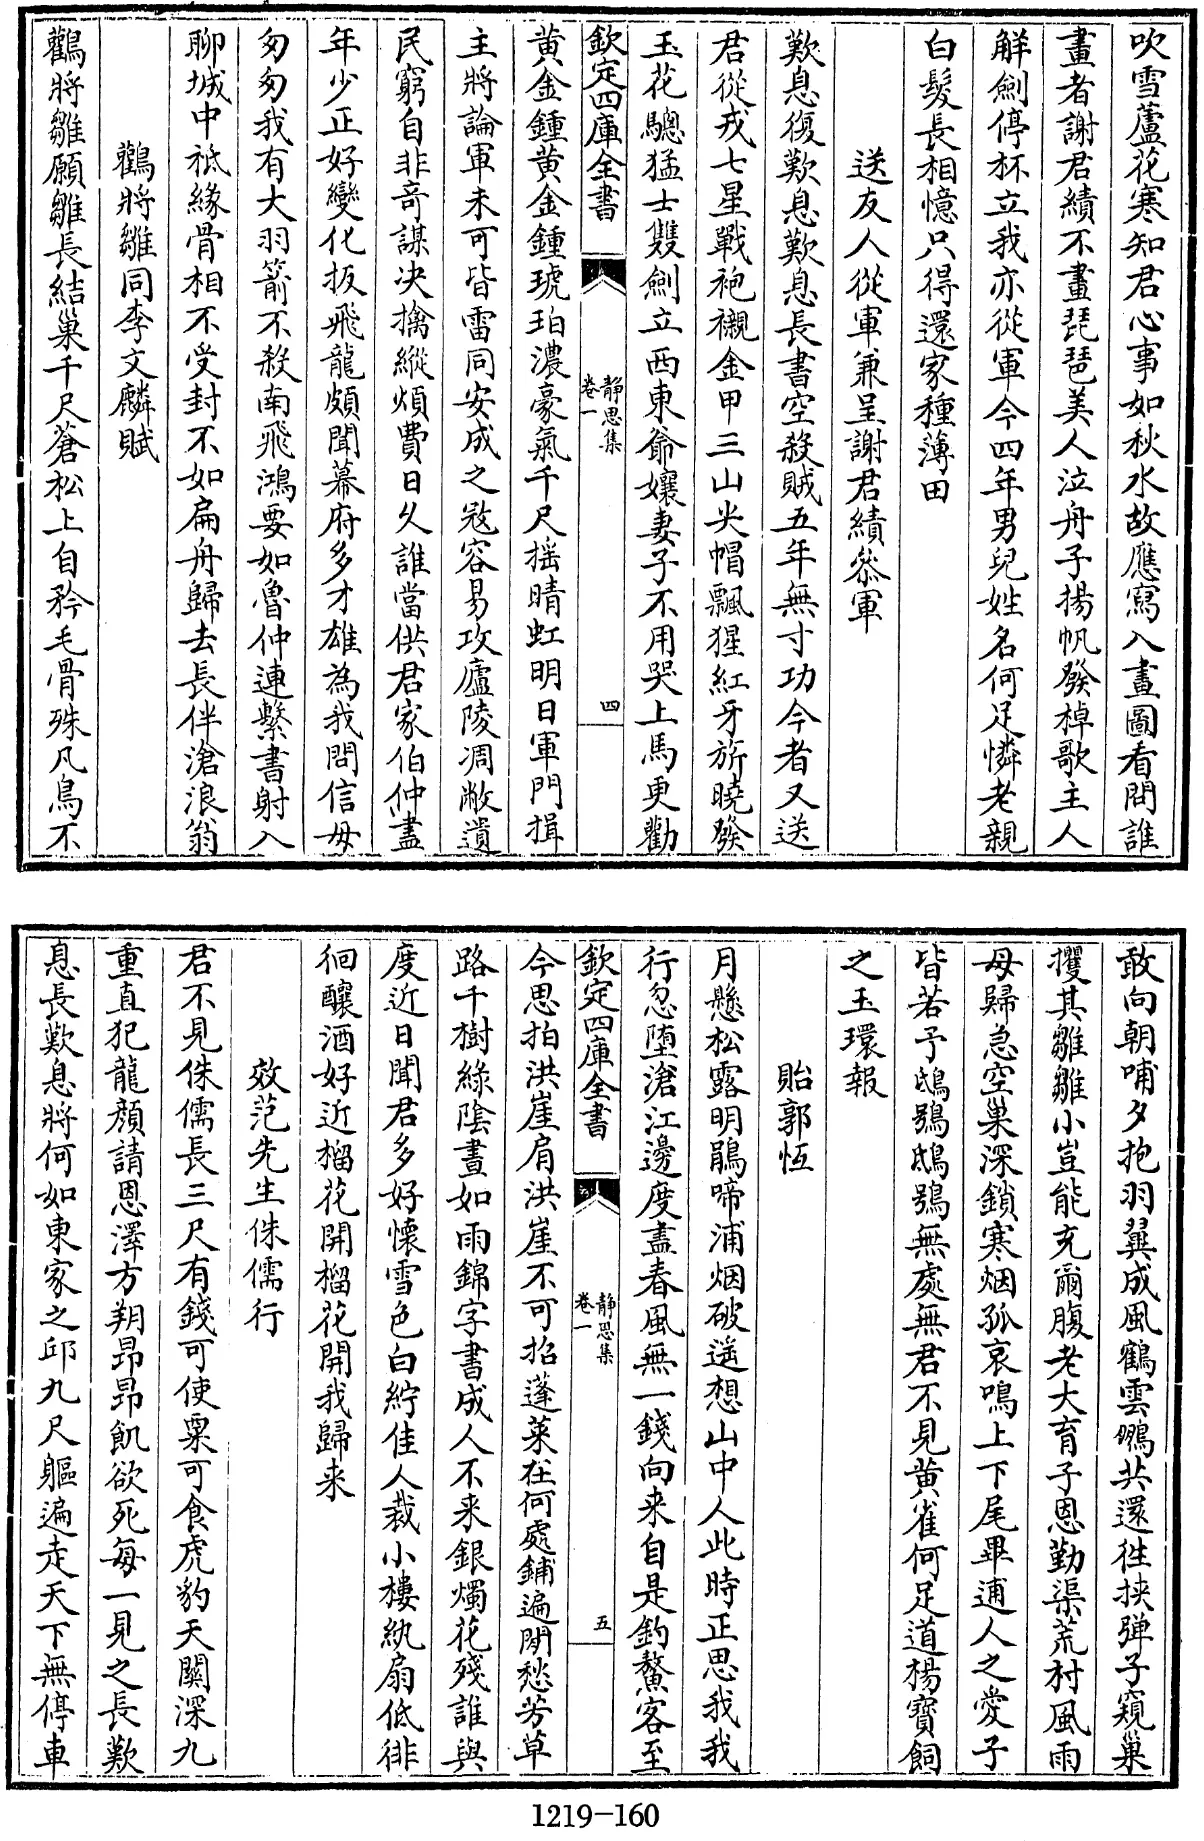 吹雪蘆花寒知君心事如秋水故應寫入畫圖看問誰
畫者謝君績不畫琵琶美人泣舟子揚帆發棹歌主人
觧劍停杯立我亦從軍今四年男兒姓名何足憐老親
白髮長相憶只得還家種薄田
送友人從軍兼呈謝君績叅軍
歎息復歎息歎息長書空殺賊五年無寸功今者又送
君從戎七星戰袍襯金甲三山尖帽飄猩紅牙旂曉發
玉花驄猛士雙劍立西東爺孃妻子不用哭上馬更勸
欽定四庫全書
静思集
卷一
四
黄金鍾黄金鍾琥珀濃豪氣千尺摇晴虹明日軍門揖
主將論軍未可皆雷同安成之冦容易攻廬陵凋敝遺
民窮自非竒謀决擒縱煩費日久誰當供君家伯仲盡
年少正好變化扳飛龍頗聞幕府多才雄為我問信毋
匆匆我有大羽箭不殺南飛鴻要如魯仲連繫書射入
聊城中祗緣骨相不受封不如扁舟歸去長伴滄浪翁
鸛將雛同李文麟賦
鸛將雛願雛長結巢千尺蒼松上自矜毛骨殊凡鳥不
敢向朝哺夕抱羽翼成風鶴雲鵰共還徃挟弹子窺巢
攫其雛雛小豈能充爾腹老大育子恩勤渠荒村風雨
母歸急空巢深鎖寒烟孤哀鳴上下尾畢逋人之愛子
皆若予鴟鴞鴟鴞無處無君不見黄雀何足道楊寳飼
之玉環報
貽郭恆
月懸松露明鵑啼浦烟破遥想山中人此時正思我我
行忽堕滄江邊度盡春風無一錢向来自是釣鰲客至
欽定四庫全書
静思集
卷一
五
今思拍洪崖肩洪崖不可招蓬萊在何處鋪遍閒愁芳草
路千樹綠陰晝如雨錦字書成人不来銀燭花殘誰與
度近日聞君多好懷雪色白紵佳人裁小樓紈扇低徘
徊釀酒好近榴花開榴花開我歸来
效范先生侏儒行
君不見侏儒長三尺有錢可使粟可食虎豹天關深九
重直犯龍顔請恩澤方朔昂昂飢欲死每一見之長歎
息長歎息將何如東家之邱九尺軀遍走天下無停車
1219-160